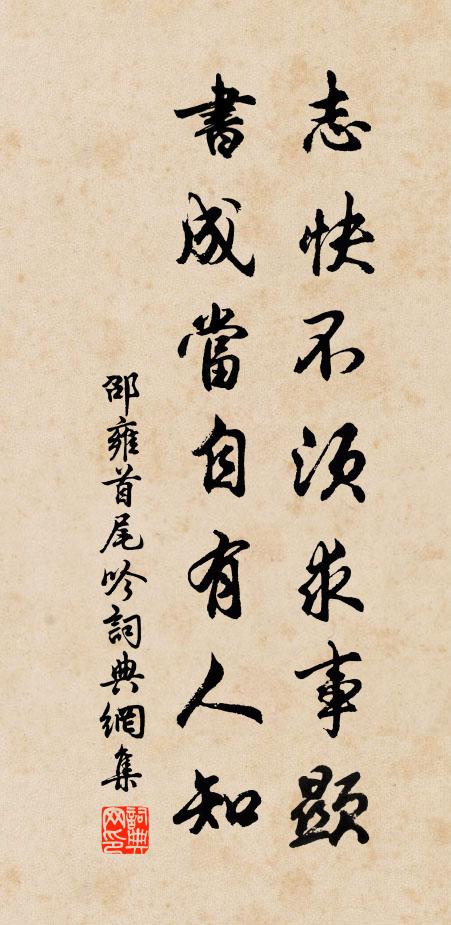 志快不須求事顯
書成當自有人知
邵雍首尾吟詞典網集
詞典網印